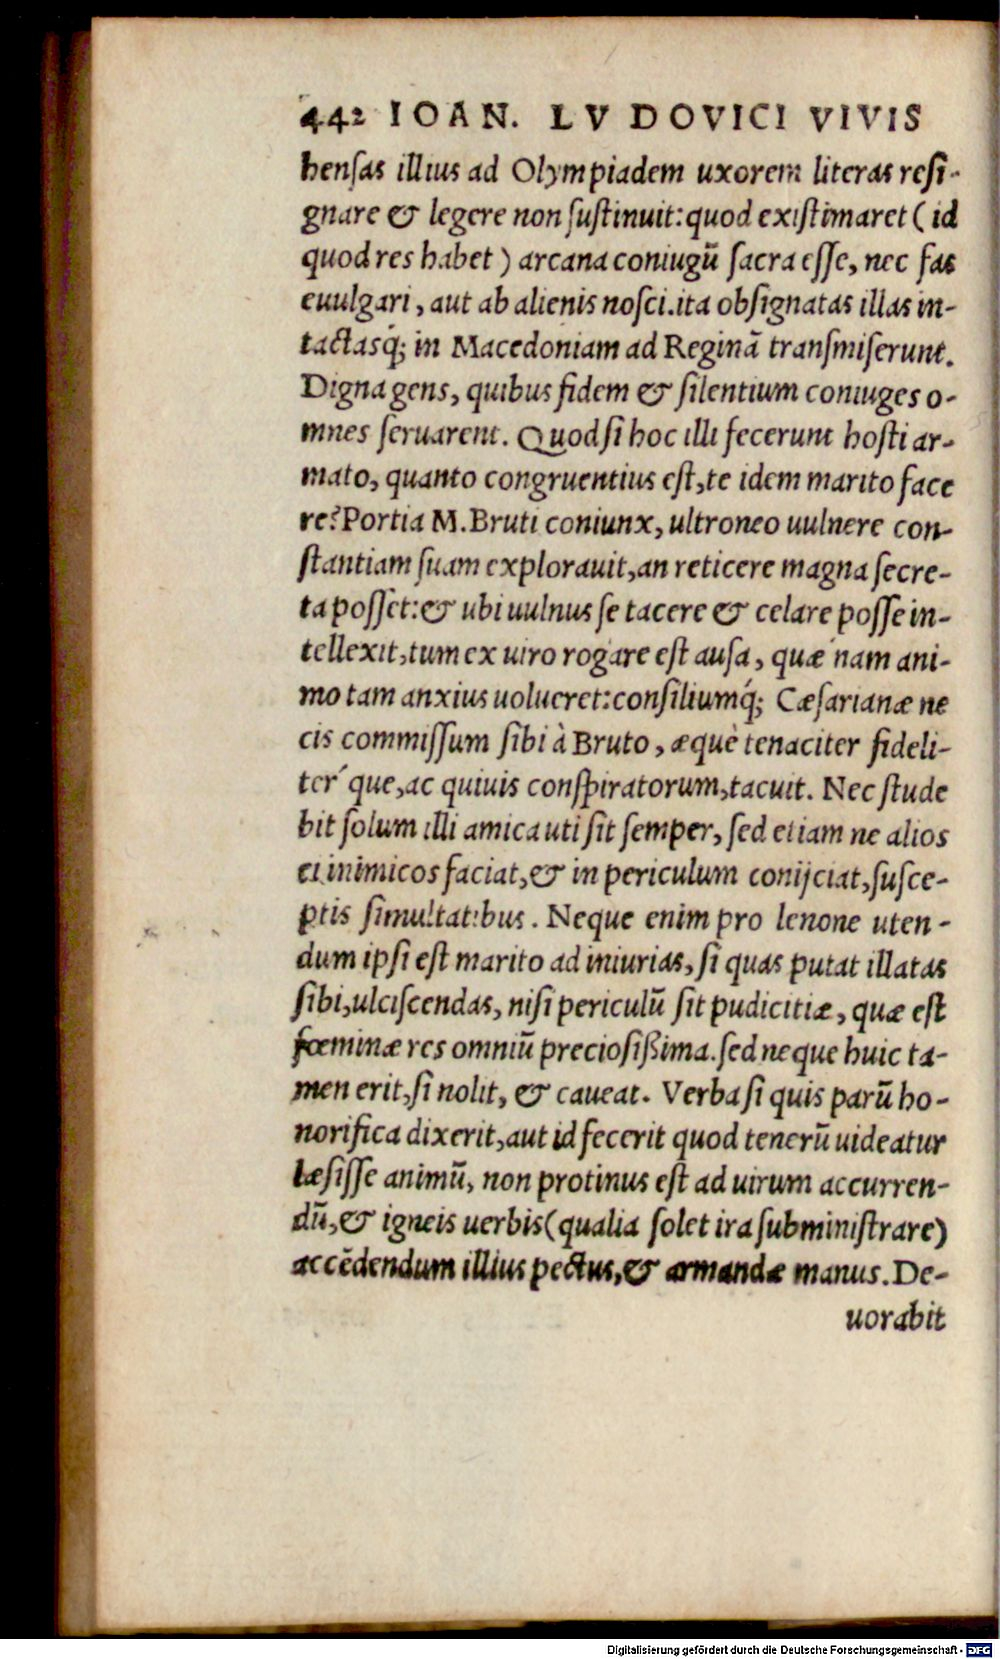 442 IOAN. LVDOVICI VIVIS
henſas illius ad Olympiadem uxorem literas reſi-
gnare & legere non ſuſtinuit: quod exiſtimaret ( id
quod res habet ) arcana coniugũ ſacra eſſe, nec fas
euulgari, aut ab alienis noſci. ita obſignatas illas in-
tactasq́; in Macedoniam ad Reginã tranſmiſerunt.
Digna gens, quibus fidem & ſilentium coniuges o-
mnes ſeruarent. Quod ſi hoc illi fecerunt hoſti ar-
mato, quanto congruentius eſt, te idem marito face
re? Portia M. Bruti coniunx, ultroneo uulnere con-
ſtantiam ſuam explorauit, an reticere magna ſecre-
ta poſſet: & ubi uulnus ſe tacere & celare poſſe in-
tellexit, tum ex uiro rogare eſt auſa, quæ nam ani-
mo tam anxius uolueret: conſiliumq́; Cæſarianæ ne
cis commiſſum ſibi à Bruto, æquè tenaciter fideli-
ter´que, ac quiuis conſpiratorum, tacuit. Nec ſtude
bit ſolum illi amica uti ſit ſemper, ſed etiam ne alios
ei inimicos faciat, & in periculum conijciat, ſuſce-
ptis ſimultatibus. Neque enim pro lenone uten-
dum ipſi eſt marito ad iniurias, ſi quas putat illatas
ſibi, ulciſcendas, niſi periculũ ſit pudicitiæ, quæ eſt
fœminæ res omniũ precioſißima. ſed neque huic ta-
men erit, ſi nolit, & caueat. Verba ſi quis parũ ho-
norifica dixerit, aut id fecerit quod tenerũ uideatur
læſiſſe animũ, non protinus eſt ad uirum accurren-
dũ, & igneis uerbis (qualia ſolet ira ſubminiſtrare)
accẽdendum illius pectus, & armandæ manus. De-
uorabit
Digitalisierung gefördert durch die Deutsche Forschungsgemeinschaft - DFG